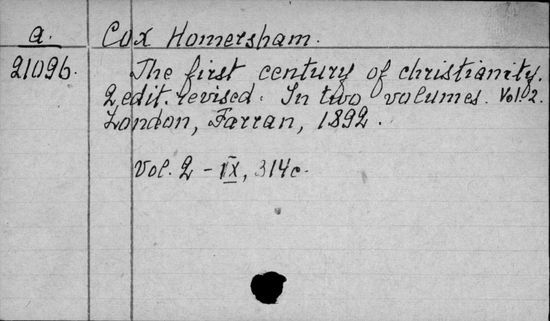 a. Cox Homersham.
21096. The first century of christianity.
2 edit. revised. In two volumes. Vol. 2.
London, Farran, 1892.
Vol. 2 - IX, 314c.